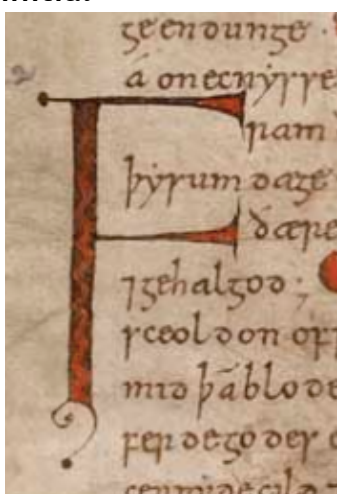 geendunge ·
á onecnẏsse
Fram
þẏsum dæge
ðære
⁊gehalgod ;
sceoldon off
mid þáblode
ferde godes